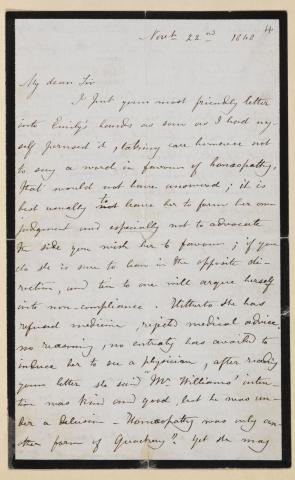 4
Novr 22nd 1848
My dear Sir
I put your most friendly letter
into Emily's hands as soon as I had my-
self perused it, taking care however not
to say a word in favour of homœopathy,
that would not have answered; it is
best usually to leave her to form her own
judgment and especially not to advocate
the side you wish her to favour; if you
do she is sure to lean in the opposite di-
rection, and ten to one will argue herself
into non-compliance. Hitherto she has
refused medicine, rejected medical advice
no reasoning, no entreaty has availed to
induce her to see a physician, after reading
your letter she said "Mr Williams' inten-
tion was kind and good, but he was un-
der a delusion - Homœopathy was only ano-
ther form of Quackery". Yet she may